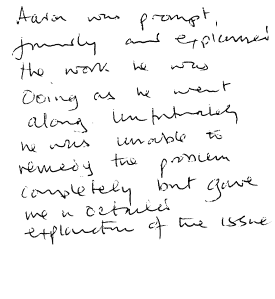 Aaron was prompt,
friendly and explained
the work he was
doing as he went
along Unfortunately
he was unable to
remedy the problem
completely but gave
me a detailed
explanation of the issue